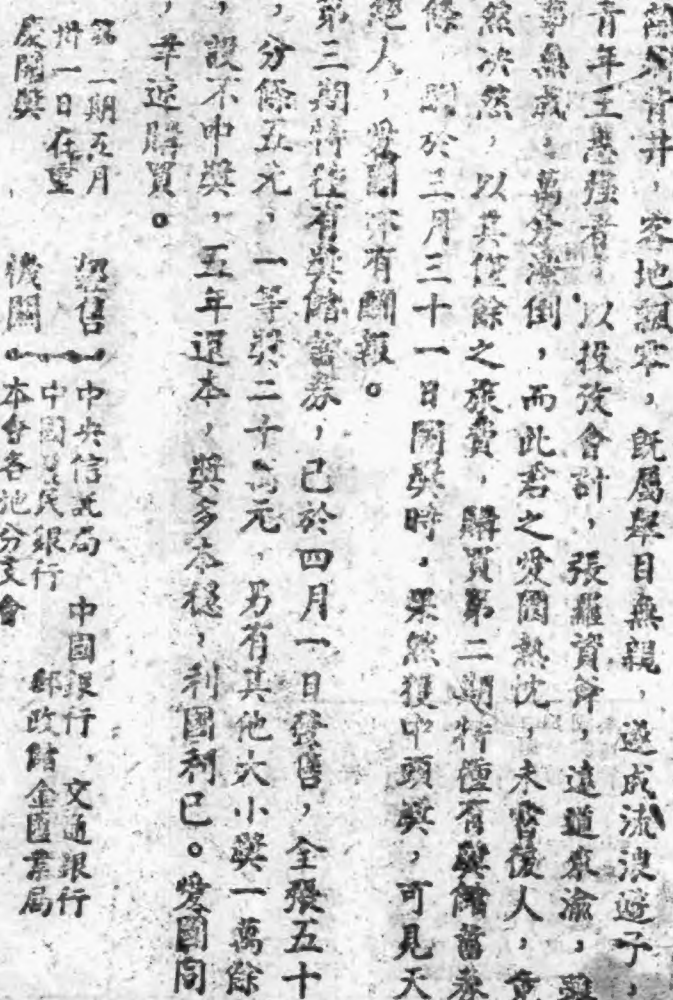 背井，客地飄零，既屬舉目無親，遂成流浪遊子，
青年王懋強者，以投攷會計，張羅資斧，遠道來渝，雖
事無成，萬分潦倒，而此君之愛國熱忱，未嘗後人，竟
然決然，以其僅餘之旅費，購買第二期特種有獎儲蓄券
條　開於三月三十一日開獎時，果然獲中頭獎，可見天
絕人，愛國亦有酬報。
第三期特種有獎儲蓄券，已於四月一日發售，全張五十
，分條五元，一等獎二十萬元，另有其他大小獎一萬餘
，設不中獎，五年還本，獎多本穩，利國利己。愛國同
，幸速購買。
第二期五月
卅一日在重
慶開獎
經售
機關
中央信託局　中國銀行，交通銀行
中國農民銀行　郵政儲金匯業局
本會各地分支會